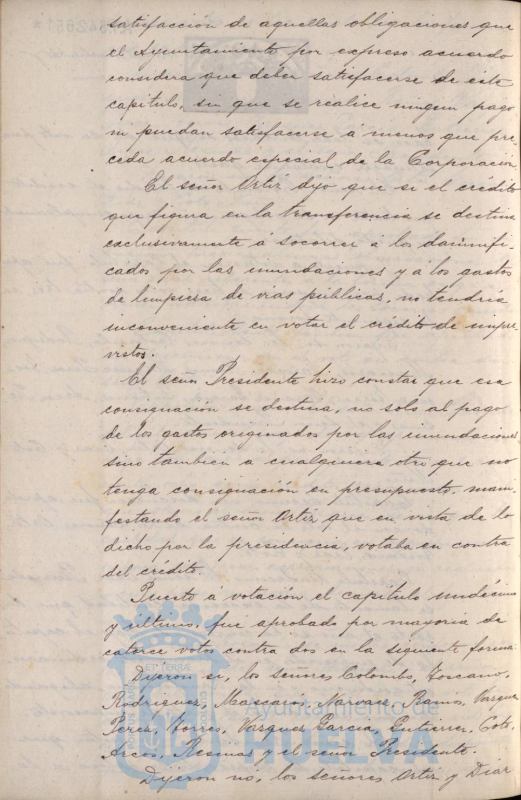 satisfacción de aquellas obligaciones que
el Ayuntamiento por expreso acuerdo
considera que deber satisfacerse de este
capitulo, sin que se realice ningun pago
ni puedan satisfacerse á menos que pre-
ceda acuerdo especial de la Corporacion
El señor Ortiz dijo que si el crédito
que figura en la transferencia se destina
exclusivamente á socorrer á los damnifi-
cados por las inundaciones y á los gastos
de limpiesa de vias públicas, no tendria
inconveniente en votar el crédito de impre-
vistos.
El señor Presidente hizo constar que esa
consignación se destina, no solo al pago
de los gastos originados por las inundaciones
sino tambien a cualquiera otro que no
tenga consignación en presupuesto, mani-
festando el señor Ortiz que en vista de lo
dicho por la presidencia, votaba en contra
del crédito.
Puesto á votación el capitulo undécimo
y último, fué aprobado por mayoria de
catorce votos contra dos en la siguiente forma:
Dijeron si, los señores Colombo, Toscano,
Rodrigues, Mascaros, Narvaes, Ramos, Vasques
Peres, Torres, Vasques Garcia, Gutierres, Coto,
Arcos, y el señor Presidente.
Dijeron no, los señores Ortiz y Diaz
Ayuntamiento de
HUELVA